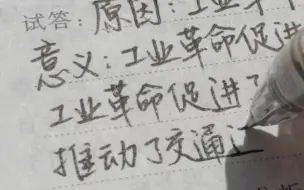 试答:原因:工业革
意义:工业革命促进
工业革命促进了
推动了交通